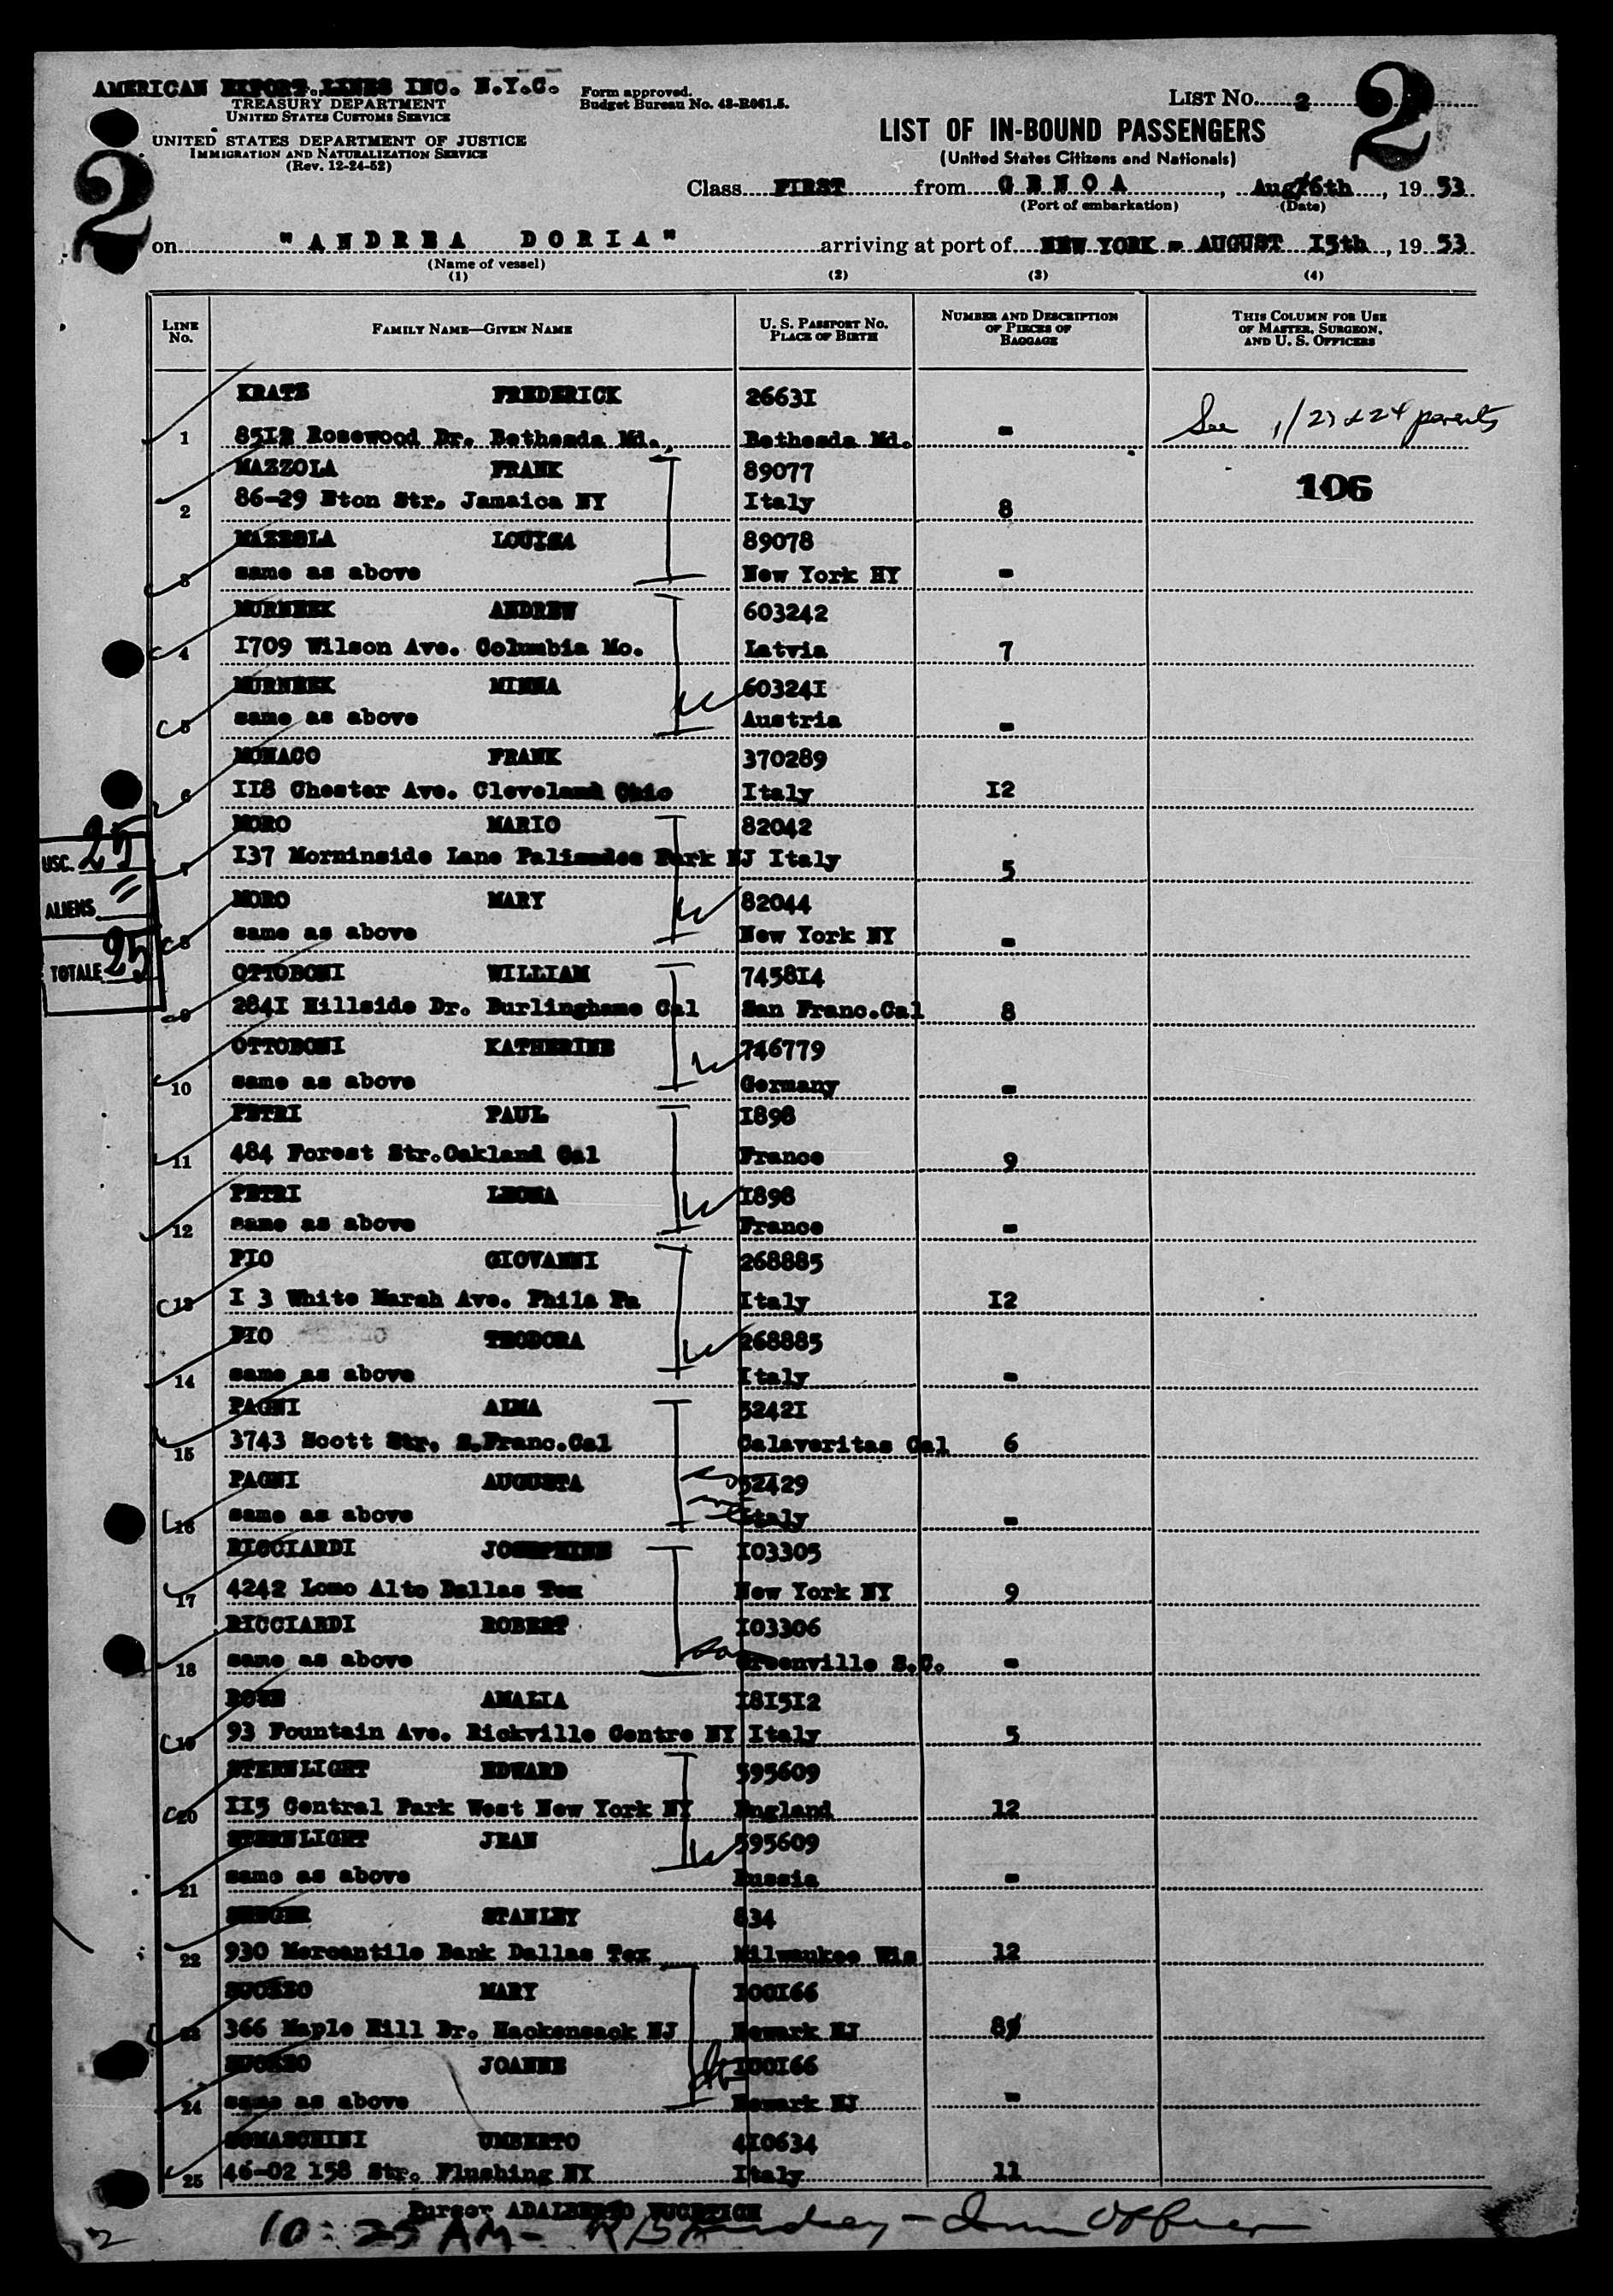 AMERICAN EXPORT LINES INC. N.Y.C.
TREASURY DEPARTMENT
UNITED STATES CUSTOMS SERVICE
UNITED STATES DEPARTMENT OF JUSTICE
IMMIGRATION AND NATURALIZATION SERVICE
(Rev. 12-24-52)
Form approved.
Budget Bureau No. 43-R061.5.
LIST NO. 2
2
2
LIST OF IN-BOUND PASSENGERS
(United States Citizens and Nationals)
Class FIRST from GENOA, Aug 6th, 19 53
(Port of embarkation) (Date)
on "ANDREA DORIA" arriving at port of NEW YORK - AUGUST I5th, 19 53
(Name of vessel)
(1) (2) (3) (4)
LINE No. FAMILY NAME—GIVEN NAME U. S. PASSPORT NO. PLACE OF BIRTH NUMBER AND DESCRIPTION OF PIECES OF BAGGAGE THIS COLUMN FOR USE OF MASTER, SURGEON, AND U. S. OFFICERS
KRATZ FREDERICK 2663I
1 85I2 Rosewood Dr. Bethesda Md. Bethesda Md. - See 1/23 & 24 parents
MAZZOLA FRANK 89077 106
2 86-29 Eton Str. Jamaica NY Italy 8
MAZZOLA LOUISA 89078
3 same as above New York NY -
MURNEEK ANDREW 603242
4 I709 Wilson Ave. Columbia Mo. Latvia 7
MURNEEK MINNA 60324I
5 same as above Austria -
MONACO FRANK 370289
6 II8 Chester Ave. Cleveland Ohio Italy I2
MORO MARIO 82042
7 I37 Morninside Lane Palisades Park NJ Italy 5
USC. 25
ALIENS =
TOTALE 25
MORO MARY 82044
8 same as above New York NY -
OTTOBONI WILLIAM 7458I4
9 284I Hillside Dr. Burlinghame Cal San Franc.Cal 8
OTTOBONI KATHERINE 746779
10 same as above Germany -
PETRI PAUL I898
11 484 Forest Str.Oakland Cal France 9
PETRI LEONA I898
12 same as above France -
PIO GIOVANNI 268885
13 I 3 White Marsh Ave. Phila Pa Italy I2
PIO TEODORA 268885
14 same as above Italy -
PAGNI ALMA 5242I
15 3743 Scott Str. S.Franc.Cal Calaveritas Cal 6
PAGNI AUGUSTA 52429
16 same as above Italy -
RICCIARDI JOSEPHINE I03305
17 4242 Lomo Alto Dallas Tex New York NY 9
RICCIARDI ROBERT I03306
18 same as above Greenville S.C. -
ROSE AMALIA I8I5I2
19 93 Fountain Ave. Rickville Centre NY Italy 5
STERNLIGHT EDWARD 595609
20 II5 Central Park West New York NY England 12
STERNLIGHT JEAN 595609
21 same as above Russia -
STANLEY 834
22 930 Mercantile Bank Dallas Tex Milwaukee Wis 12
SUOZZO MARY I00I66
23 366 Maple Hill Dr. Hackensack NJ Newark NJ 8
SUOZZO JOANNE I00I66
24 same as above Newark NJ -
SOMASCHINI UMBERTO 4I0634
25 46-02 I58 Str. Flushing NY Italy 11
Purser ADALBERTO
10:25 AM - Imm Officer
2